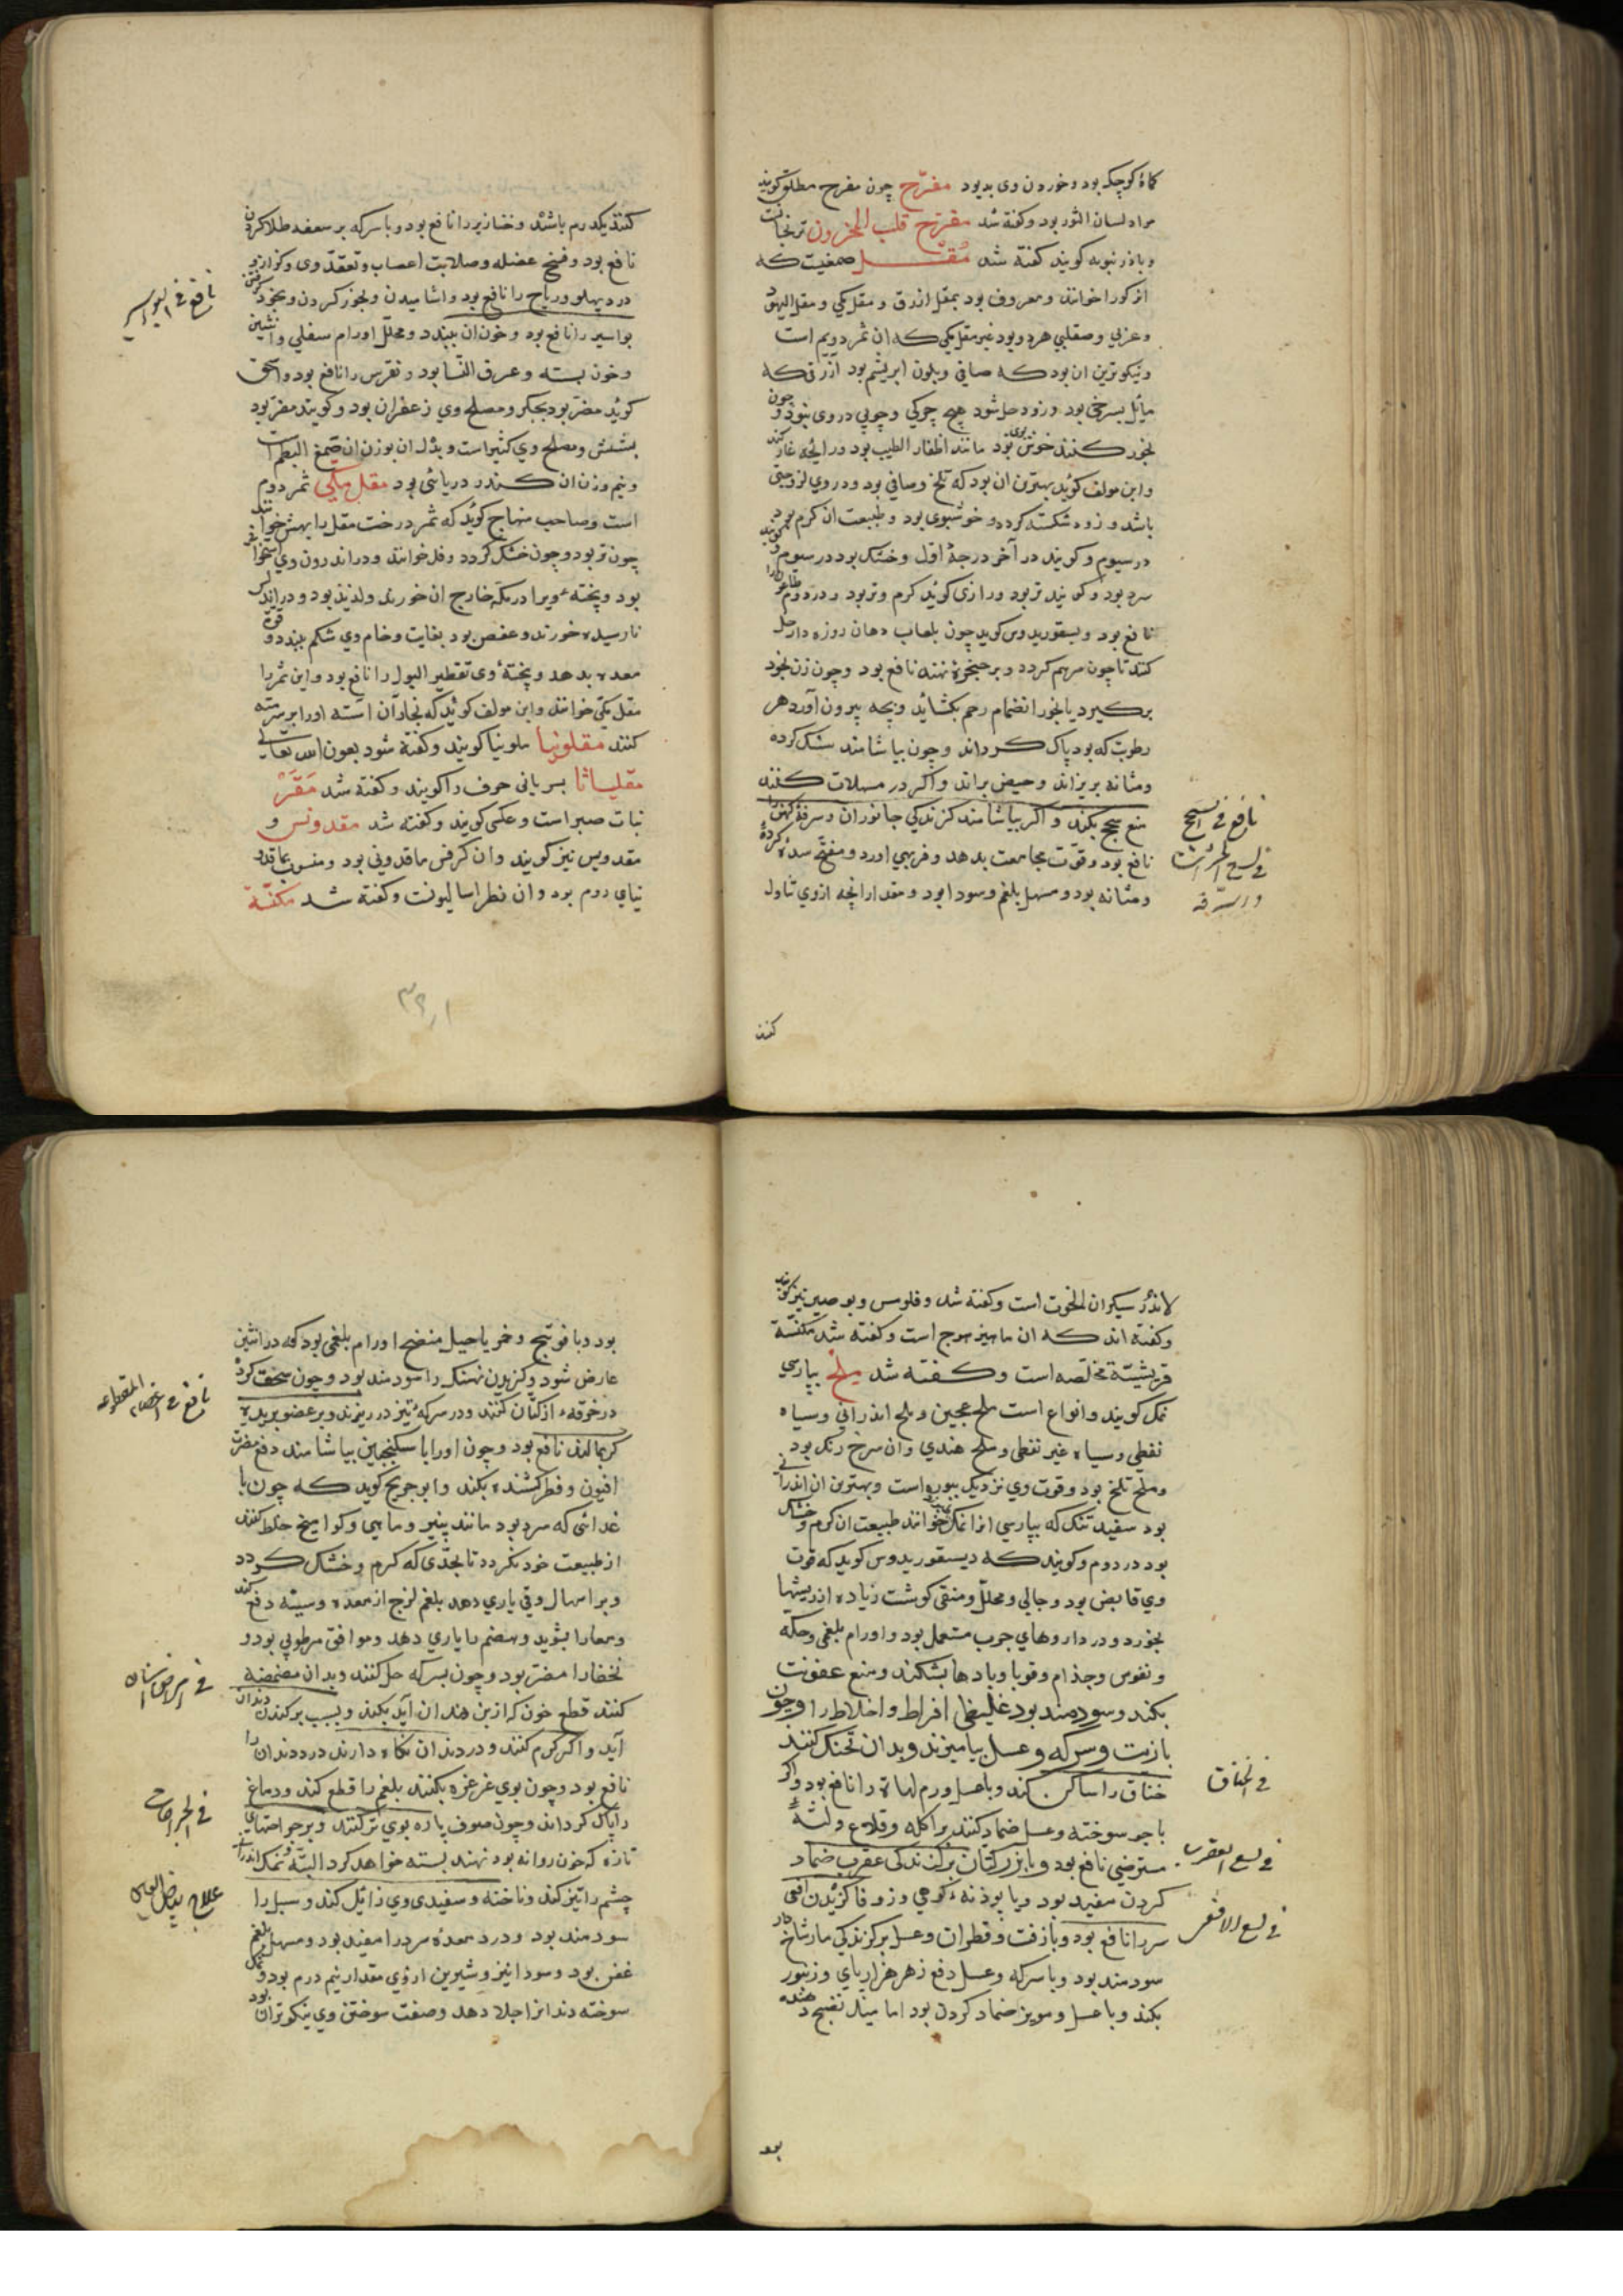 کماة کوچک بود و خوردن وی بد بود مفرّح چون مفرح مطلق کویند
مراد لسان الثور بود و کفته شد مفرّح قلب المحزون ترنجانست
و باذرنبویه کویند کفته شد مُقْل صمغیست که
انرا کور خوانند و معروف بود بمقل ازرق و مقل مکی و مقل الیهود
و عربی و صقلبی هردو بود غیر مقل مکی که ان ثمر دویم است
و نیکوترین ان بود که صافی و بلون ابریشم بود ازرقی که
مایل بسرخی بود و زود حل شود هیچ چرکی و چوبی دروی نبود و چون
بخور کنند خوش بوی بود مانند اظفار الطیب بود در رایحه
و ابن مولف کوید بهترین ان بود که تلخ و صافی بود و در وی لزوجتی
باشد و زود شکسته کردد و خوشبوی بود و طبیعت ان کرم بود
در سیوم و کویند در آخر درجهٔ اول و خشک بود در سیوم و کویند
سرد بود و کویند تر بود و رازی کوید کرم و تر بود و در دوم
نافع بود و دیسقوریدوس کوید چون بلعاب دهان روزه دار حل
کنند تا چون مرهم کردد و بر حنجره نهند نافع بود و چون زن بخود
برکیرد یا بخور انضمام رحم بکشاید و بچه بیرون آورد هر
رطوبت که بود پاک کرداند و چون بیاشامند سنک کرده
و مثانه بریزاند و حیض براند و اکر در مسهلات کنند
منع سحج بکند و اکر بیاشامند کزندکی جانوران و سرفهٔ کهن را
نافع بود و قوّت مجامعت بدهد و فربهی اورد و مفتّح سدهٔ کرده
و مثانه بود و مسهل بلغم و سودا بود و مقدار انچه ازوی تناول
نافع فی السحج
فی لسع
والسرفه
کنند
کنند یکدرم باشد و خنازیر را نافع بود و با سرکه بر سعفه طلا کردن
نافع بود و فسخ عضله و صلابت اعصاب و تعقّد وی و کزاز و
درد پهلو و ریاح را نافع بود و اشامیدن و بخور کردن و بخود کرفتن
بواسیر را نافع بود و خون ان ببندد و محلّل اورام سفلی و انثیین
و خون بسته و عرق النّسا بود و نقرس را نافع بود و اسحق
کوید مضر بود بجکر و مصلح وی زعفران بود و کویند مضر بود
بشش و مصلح وی کثیراست و بدل ان بوزن ان صمغ البطم است
و نیم وزن ان کندر دریائی بود مقل مکّی ثمر دوم
است و صاحب منهاج کوید که ثمر درخت مقل را بهش خوانند
چون تر بود و چون خشک کردد وقل خوانند و در اندرون وی استخوانی
بود و پخته ویرا در مکّه خارج ان خورند و لذیذ بود و در اندلس
نارسیده خورند و عفص بود بغایت و خام وی شکم ببندد و قوة
معده بدهد و پختهٔ وی تقطیر البول را نافع بود و این ثمر را
مقل مکّی خوانند و ابن مولف کوید که نجاران استه اورا بر سر مته
کنند مقلونیا ملونیا کویند و کفته شود بعون الله تعالی
مقلیاثا بسریانی حرف را کویند و کفته شد مَقْرْ
نبات صبر است و علکی کویند و کفته شد مقدونس و
مقدویس نیز کویند و ان کرفس ماقدونی بود و منسوب بماقد
نیای روم بود و ان فطراسالیونست و کفته شد مکفّة
نافع فی البواسیر
لاندر سیکران الحوت است و کفته شد و قلومس و بوصیر نیز کویند
و کفته اند که ان ماهیزهرج است و کفته شد مکنسة
قریشیّة مخلّصه است و کفته شد ملح بپارسی
نمک کویند و انواع است ملح عجین و ملح اندرانی و سیاه
نفطی و سیاه غیر نفطی و ملح هندی و ان سرخ رنک بود
و ملح تلخ بود و قوت وی نزدیک ببوره است و بهترین ان اندرانی
بود سفید تنک که بپارسی انرا نمک خوانند طبیعت ان کرم و خشک
بود در دوم و کویند که دیسقوریدوس کوید که قوت
وی قابض بود و جالی و محلّل و منقی کوشت زیاده از ریشها
بخورد و در داروهای جرب مستعمل بود و اورام بلغمی و حکّه
و نقرس و جذام و قوبا و بادها بشکند و منع عفونت
بکند و سودمند بود غلیظی افراط و اخلاط را و چون
با زیت و سرکه و عسل بیامیزند و بدان تحنک کنند
خناق را ساکن کند و با عسل ورم لهاة را نافع بود و اکر
با جو سوخته و عسل ضماد کنند بر اکله و قلاع و لثهٔ
مسترخی نافع بود و با بزرکتان بر کزندکی عقرب ضماد
کردن مفید بود و با پودنهٔ کوهی و زوفا کزیدن افعی
سر را نافع بود و با زفت و قطران و عسل بر کزندکی مار شاخ دار
سودمند بود و با سرکه و عسل دفع زهر هزارپای و زنبور
بکند و با عسل و مویز ضماد کردن بود اما میل نضج دهنده
فی الخناق
فی لسع العقرب
فی لسع الافعی
بود
بود و با فوتنج و خمر یا حیل منضج اورام بلغمی بود که در انثیین
عارض شود و کزیدن نهنک را سودمند بود و چون سحق کرده
در خرقهٔ از کتّان کنند و در سرکهٔ تیز در ریزند و بر عضو بریده
کر بمالند نافع بود و چون اورا با سکنجبین بیاشامند دفع مضرت
افیون و فطر کشنده بکند و ابو جریج کوید که چون با
غذائی که سرد بود مانند پنیر و ماهی و کوامیخ خلط کنند
از طبیعت خود بکردد تا بحدّی که کرم و خشک کردد
و بر اسهال و قی یاری دهد بلغم لزج از معده و سینه دفع کند
و معا را بشوید و هضم را یاری دهد و موافق مرطوبی بود و
نحفا را مضر بود و چون بسرکه حل کنند و بدان مضمضه
کنند قطع خون که از بن دندان آید بکند و بسبب برکندن دندان
آید و اکر کرم کنند و در دندان نکاه دارند درد دندان را
نافع بود و چون بوی غرغره بکنند بلغم را قطع کند و دماغ
را پاک کرداند و چون صوف پاره بوی تر کنند و بر جراحتهای
تازه که خون روانه بود نهند بسته خواهد کرد البتّه و نمک اندرانی
چشم را تیز کند و ناخنه و سفیدی وی زائل کند و سبل را
سودمند بود و درد معدهٔ سرد را مفید بود و مسهل بلغم
عفن بود و سودا نیز و شیرین ازوی مقدار نیم درم بود و نمک
سوخته دندانرا جلا دهد و صفت سوختن وی نیکوتر ان بود
نافع فی المقطوعه
فی امراض
فی الجراحات
علاج بیاض العین